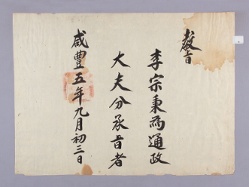 敎旨
李宗秉爲通政
大夫分承旨者
咸豊五年九月初三日